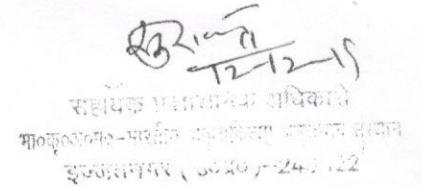 12-12-15
सहायक प्रशासनिक अधिकारी
भा०कृ०अ०प०-भारतीय अनुसंधान संस्थान
इज्जतनगर (उ०प्र०)-243122